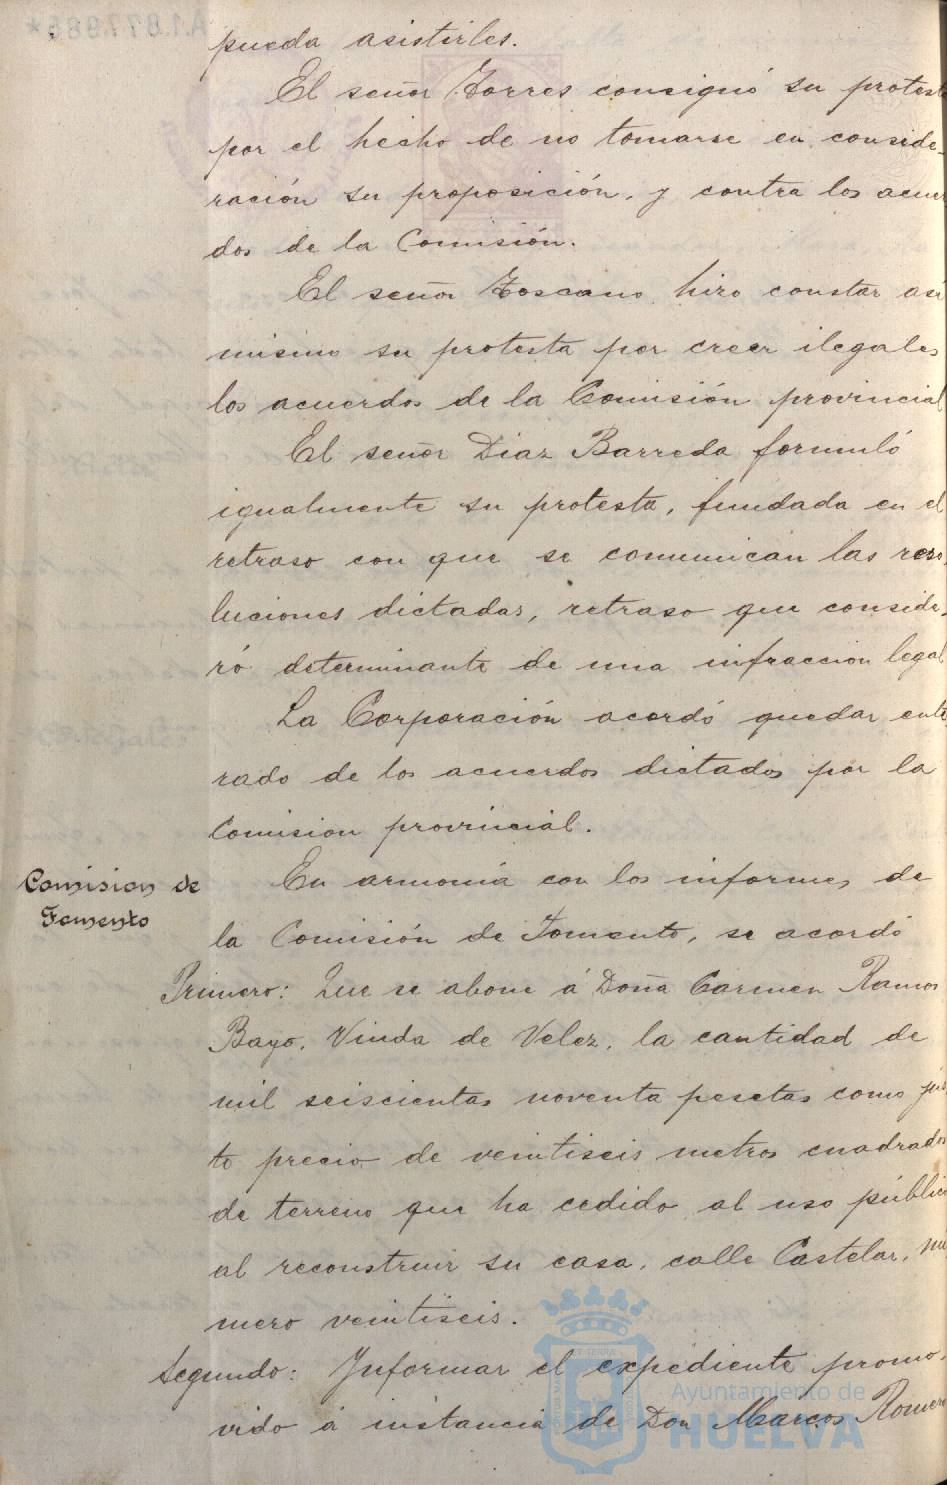 A.1.877.985*
pueda asistirles.
El señor Torres consignó su protest
por el hecho de no tomarse en conside-
ración su proposición, y contra los acuer
dos de la Comisión.
El señor Toscano hizo constar asi
mismo su protesta por creer ilegales
los acuerdos de la Comisión provincial
El señor Diaz Barreda formuló
igualmente su protesta, fundada en el
retraso con que se comunican las reso-
luciones dictadas, retraso que conside-
ró determinante de una infraccion legal
La Corporación acordó quedar ente
rado de los acuerdos dictados por la
Comision provincial.
Comision de
Fomento
En armonia con los informes de
la Comisión de Fomento, se acordó
Primero: Que se abone á Doña Carmen Ramos
Bayo, Viuda de Velez, la cantidad de
mil seiscientas noventa pesetas como jus
to precio de veintiseis metros cuadrados
de terreno que ha cedido al uso público
al reconstruir su casa, calle Castelar, nu
mero veintiseis.
Segundo: Informar el expediente promo-
vido á instancia de Don Marcos Romero
Ayuntamiento de
HUELVA